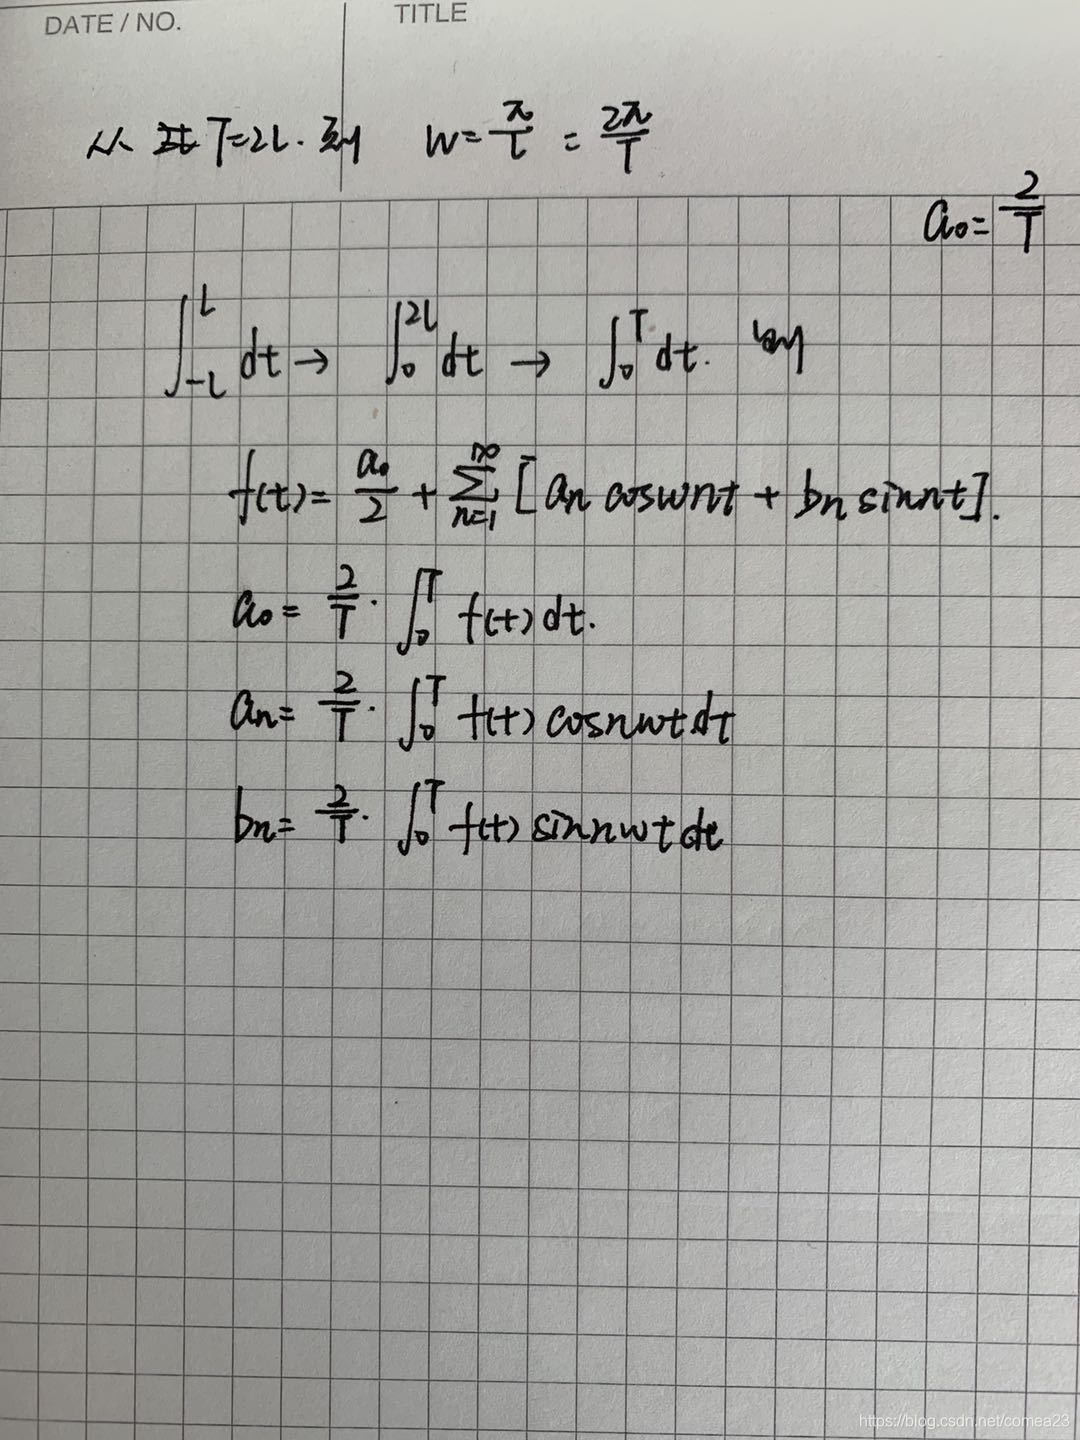 DATE / NO.
TITLE
从 T=2L. 则 w=π/L = 2π/T
a₀= 2/T
∫_{-L}^{L} dt → ∫_0^{2L} dt → ∫_0^T dt.
f(t)= a₀/2 + ∑_{n=1}^{∞} [an coswnt + bn sinnt].
a₀= 2/T · ∫_0^T f(t) dt.
an= 2/T · ∫_0^T f(t) cosnwt dt
bn= 2/T · ∫_0^T f(t) sinnwt dt
https://blog.csdn.net/comea23